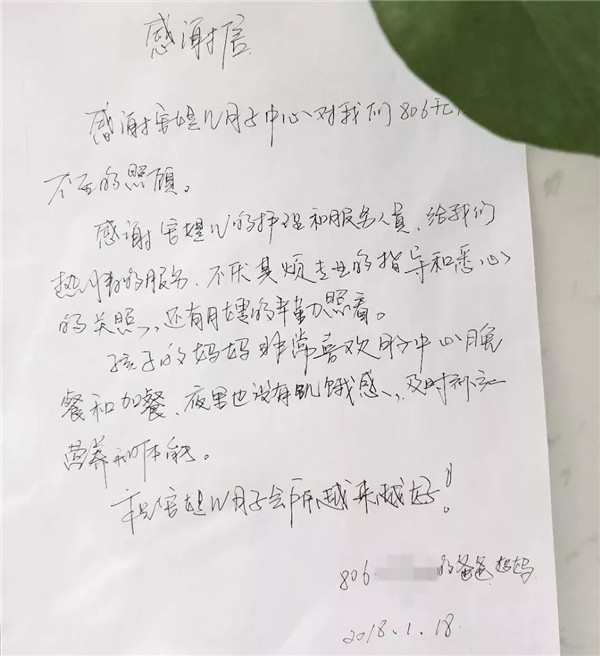 感谢信
感谢月子中心对我们806无
不至的照顾。
感谢的护理和服务人员、给我们
热情的服务、不厌其烦专业的指导和悉心
的关照,还有月嫂的辛勤照看。
孩子的妈妈非常喜欢月子中心晚
餐和加餐、夜里也没有饥饿感,及时补充
营养和体能。
祝月子会所越来越好!
806 的爸爸妈妈
2018.1.18